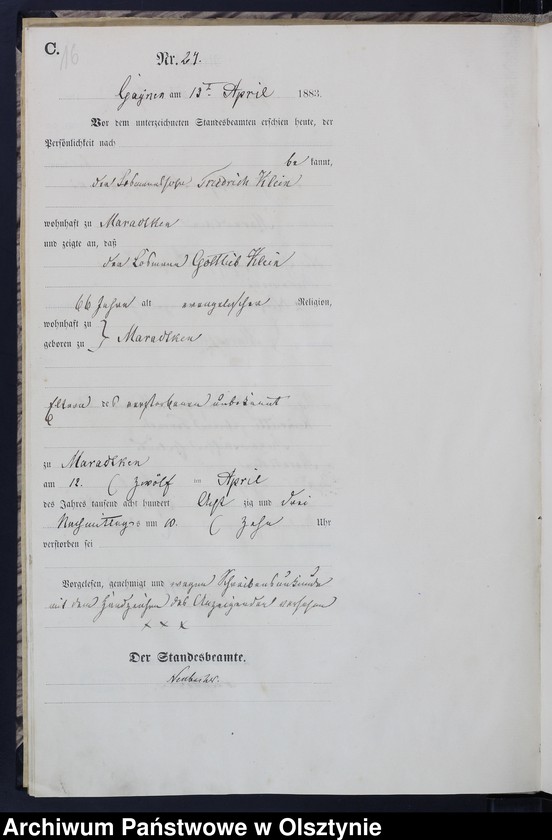 C.
16
Nr. 27.
am 13t April 1883.
Vor dem unterzeichneten Standesbeamten erschien heute, der
Persönlichkeit nach
be kannt,
den Losmannssohn Friedrich Klein
wohnhaft zu Maradtken
und zeigte an, daß
der Losmann Gottlieb Klein
66 Jahre alt evangelischer Religion,
wohnhaft zu
geboren zu } Maradtken
Eltern des verstorbenen unbekannt
zu Maradtken
am 12. ( zwölf ten April
des Jahres tausend acht hundert Acht zig und drei
Nachmittags um 10. ( zehn Uhr
verstorben sei
Vorgelesen, genehmigt und wegen Schreibensunkunde
mit dem Handzeichen des Anzeigenden versehen
x x x
Der Standesbeamte.
Archiwum Państwowe w Olsztynie